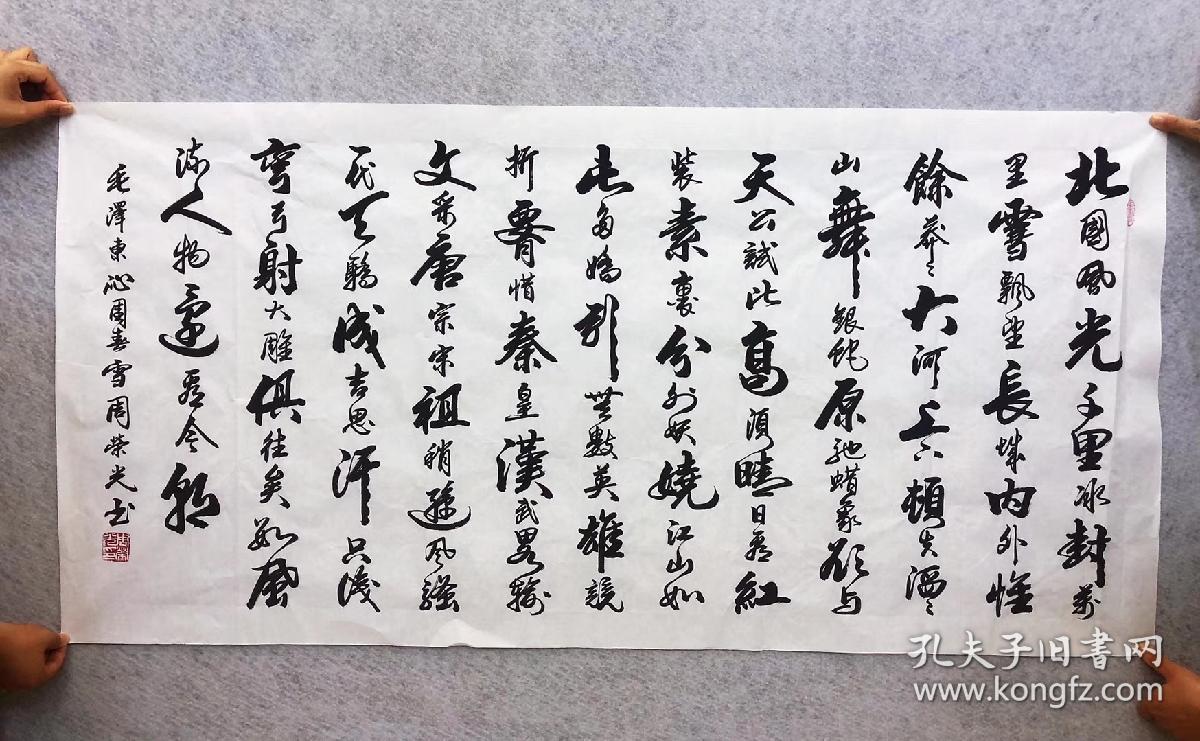 北國風光千里冰封萬
里雪飄望長城內外惟
餘莽々大河上下頓失滔々
山舞銀蛇原馳蜡象欲與
天公試比高須晴日看紅
裝素裹分外妖嬈江山如
此多嬌引無數英雄競
折腰惜秦皇漢武略輸
文采唐宗宋祖稍遜風騷
一代天驕成吉思汗只識
彎弓射大雕俱往矣數風
流人物還看今朝
毛澤東沁園春雪周榮光書
孔夫子旧書网
www.kongfz.com